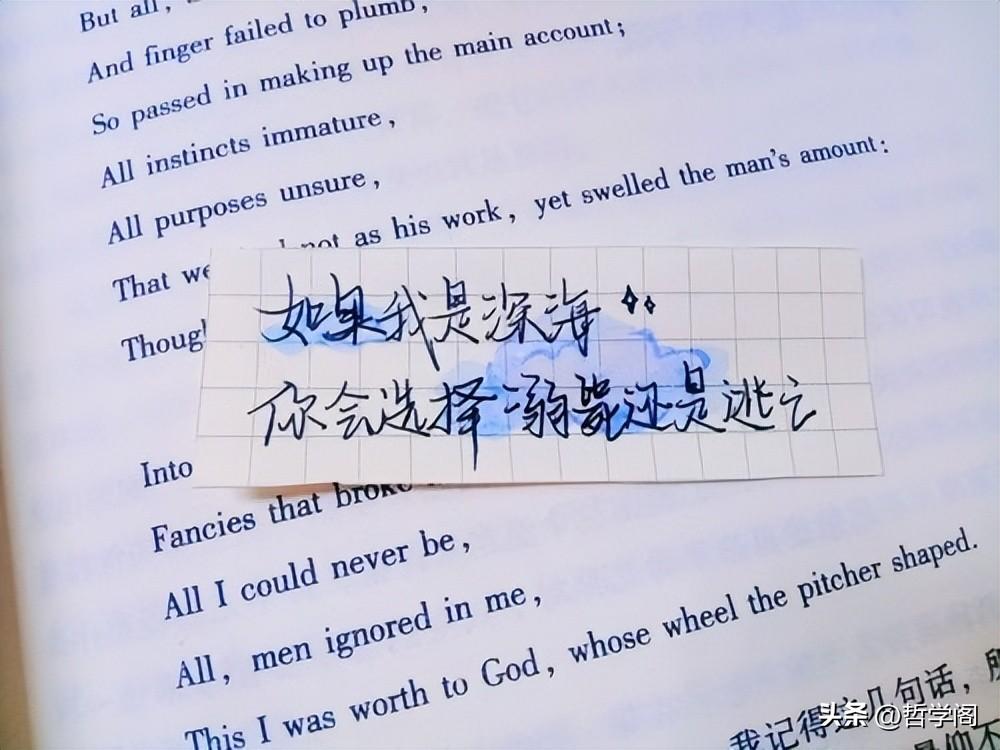 But all,
And finger failed to plumb,
So passed in making up the main account;
All instincts immature,
All purposes unsure,
That we not as his work, yet swelled the man's amount:
Though
如果我是深海
你会选择溺毙还是逃亡
Into
Fancies that broke
All I could never be,
All, men ignored in me,
This I was worth to God, whose wheel the pitcher shaped.
我记得这几句话,
头条 @哲学阁